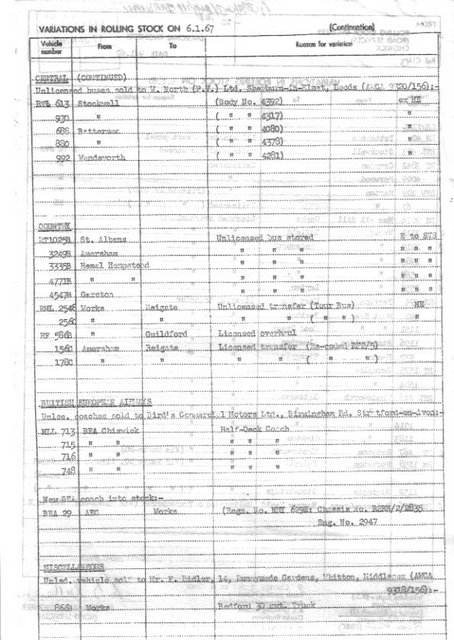 VARIATIONS IN ROLLING STOCK ON 6.1.67 (Continuation)
Vehicle number From To Reason for variation
CENTRAL (CONTINUED)
Unlicensed buses sold to W. North (P.V.) Ltd, Sherburn-in-Elmet, Leeds (AWCA 9320/156):-
RTL 613 Stockwell (Body No. 4392) ex NE
930 " ( " " 4317)
686 Battersea ( " " 4080)
880 " ( " " 4378)
992 Wandsworth ( " " 4281)
COUNTRY
RT1025B St. Albans Unlicensed bus stored R to STS
3249B Amersham " " " " " "
3335B Hemel Hempstead " " " " " "
4771B " " " " " " " "
4547B Garston " " " " " "
RML 2548 Works Reigate Unlicensed transfer (Tour Bus) NE
256C " " " " ( " " ) "
RF 586B " Guildford Licensed overhaul
156C Amersham Reigate Licensed transfer
178C " " " " ( " )
BRITISH EUROPEAN AIRWAYS
Unlsc. coaches sold to Bird's Commercial Motors Ltd., Birmingham Rd, Stratford-on-Avon:-
MLL 713 BEA Chiswick Half-Deck Coach
715 " " " " "
716 " " " " "
748 " " " " "
New BEA coach into stock:-
BEA 29 AEC Works (Regn. No. NMY 629E: Chassis No. R2RH/2/2835
Eng. No. 2947
MISCELLANEOUS
Unlsd. vehicle sold to Mr. F. Ridler, 14, Gardens, Whitton, Middlesex (AWCA
9318/156):-
Works Bedford 30 cwt. Truck